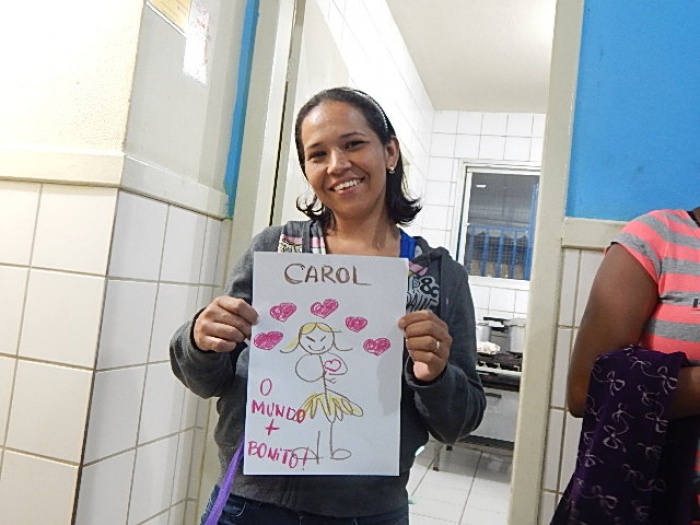 CAROL
O
MUNDO
+
BONITO!